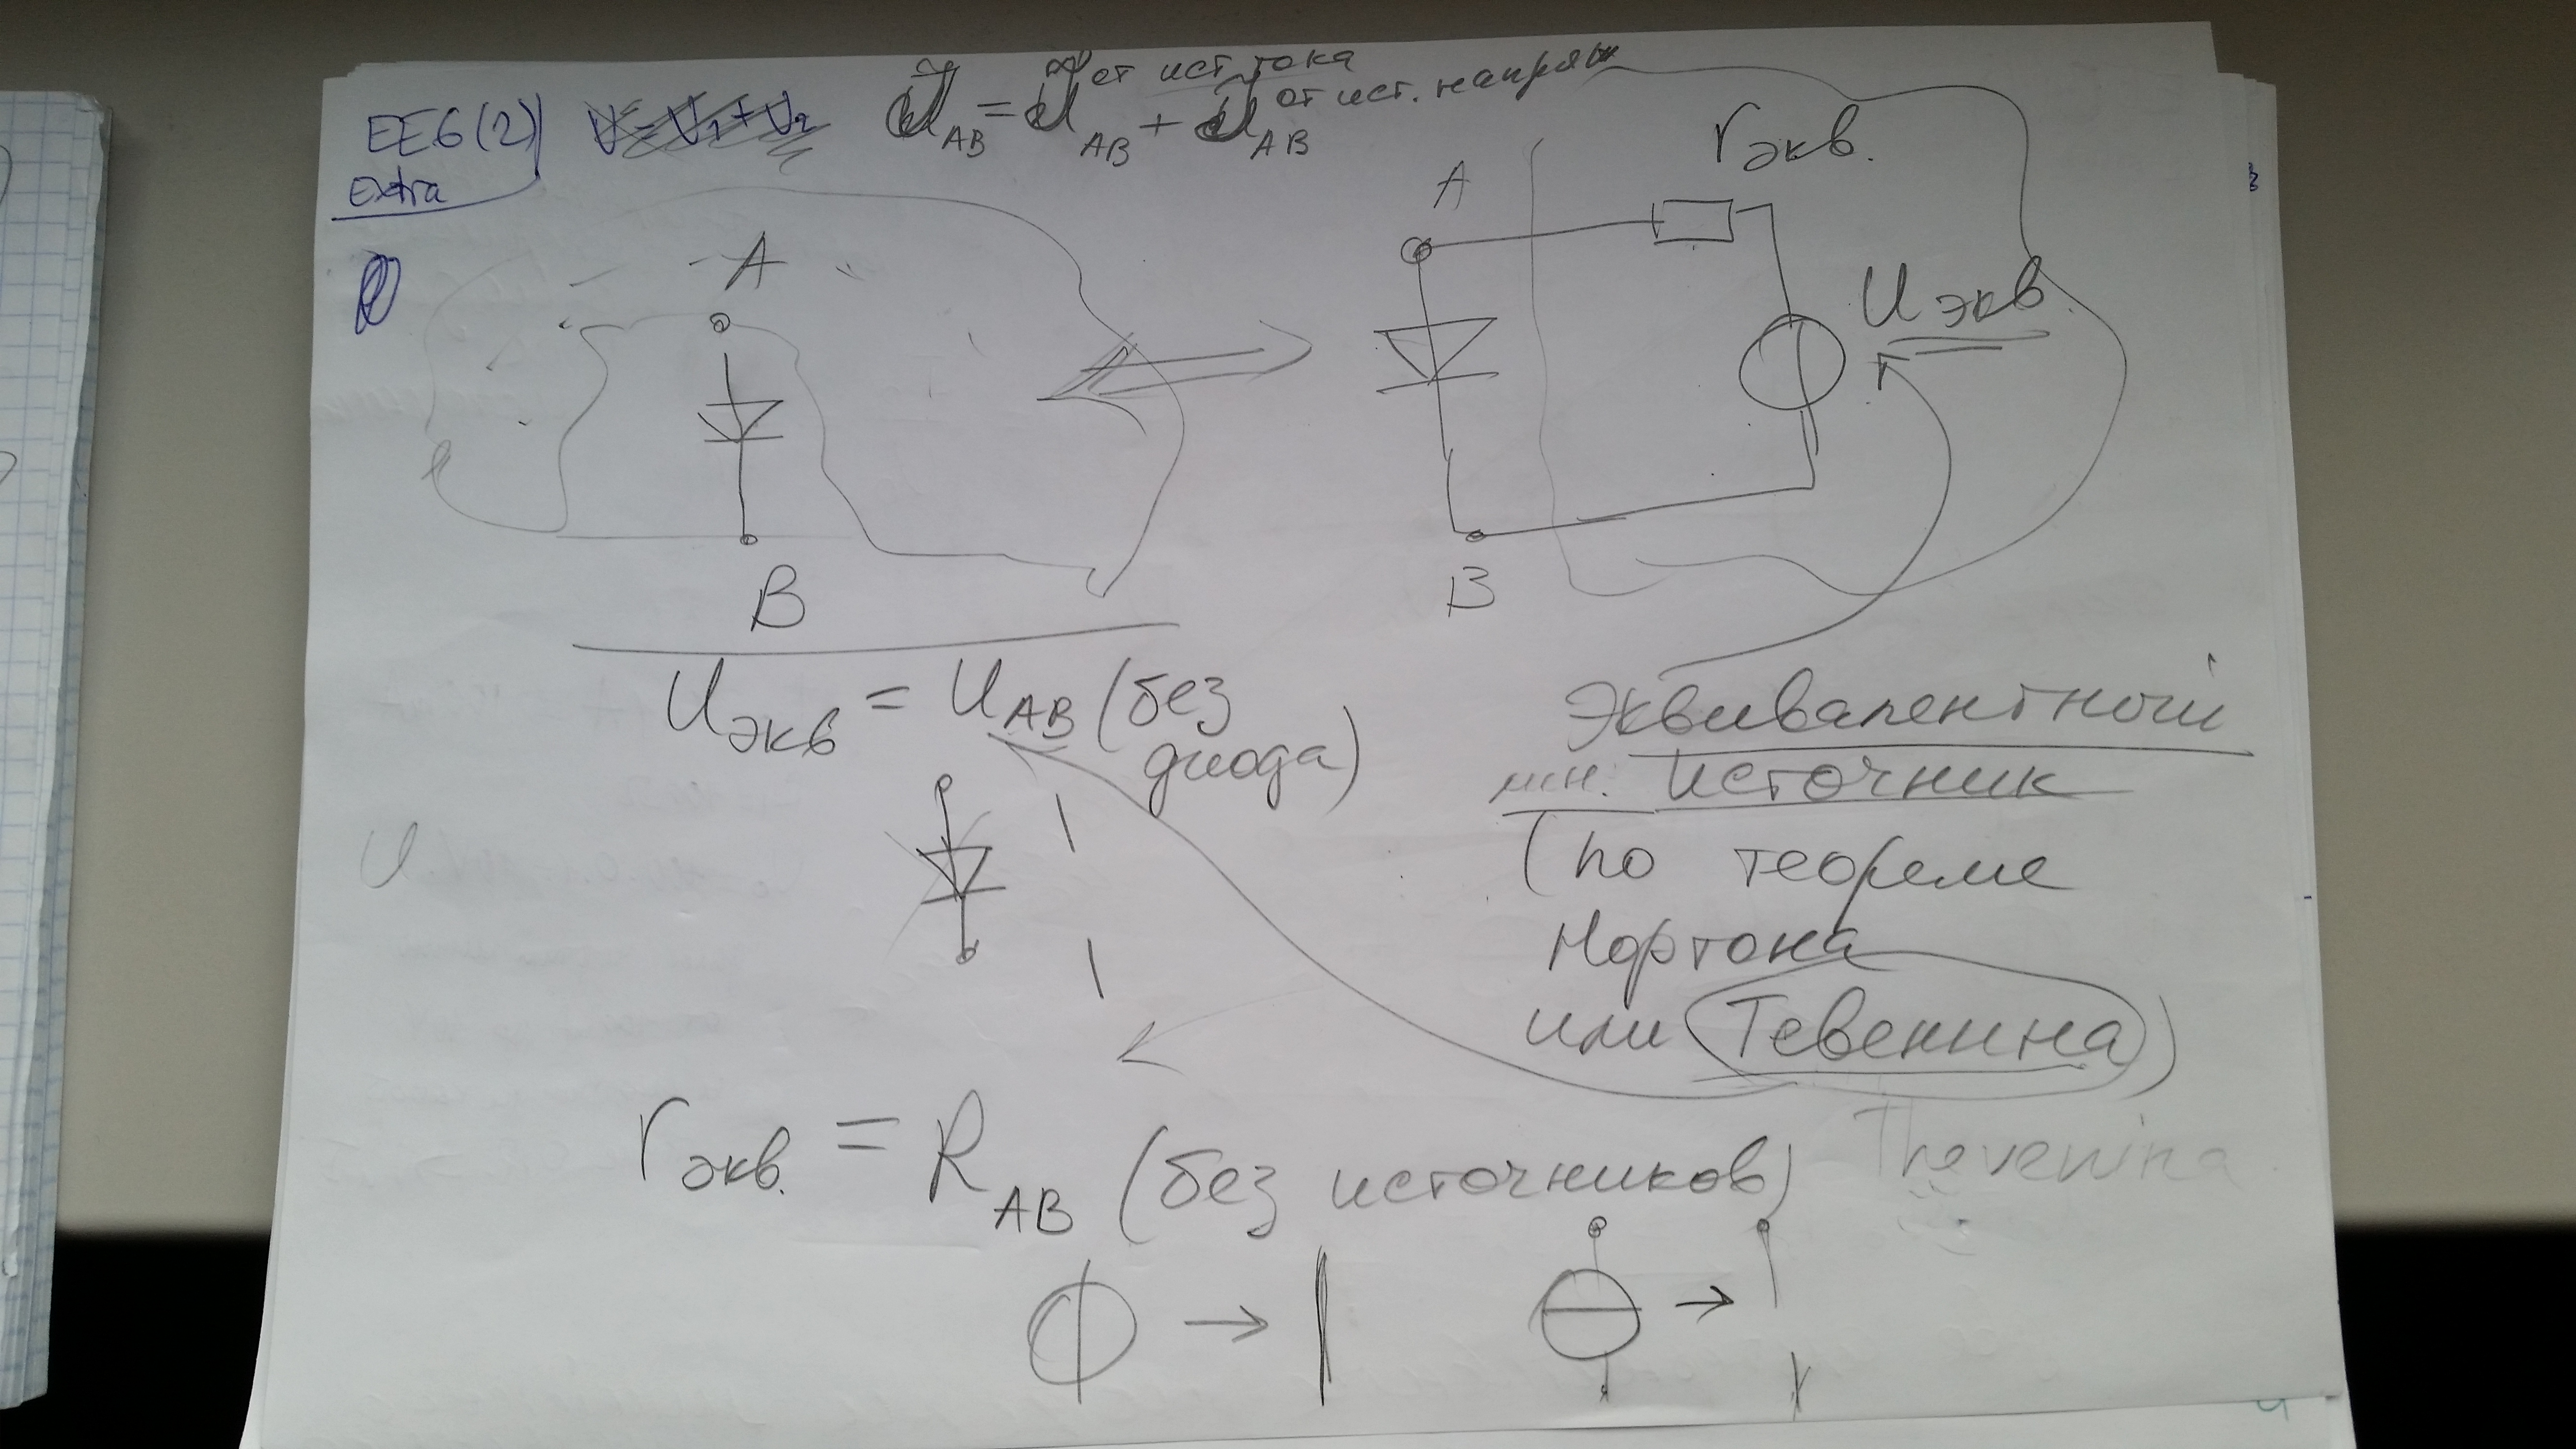 EE6(2)
Extra
V=V₁+V₂
U_AB = U_AB от ист тока + U_AB от ист. напряж
A
B
A
r экв.
U экв
B
U экв = U AB (без
диода)
U
Эквивалентный
источник
(по теореме
Нортона
или Тевенина)
Thevenina
r экв. = R AB (без источников)